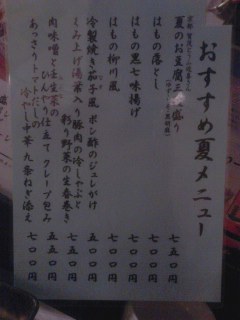 おすすめ夏メニュー
夏のお豆腐三種盛り
七五〇円
はもの落とし
七〇〇円
はもの黒七味揚げ
七〇〇円
はもの柳川風
七〇〇円
冷製焼き茄子風 ポン酢のジュレがけ
五五〇円
くみ上げ湯葉入り 豚肉の冷しゃぶと
彩り野菜の生春巻き
七五〇円
肉味噌と壬生菜の
ひんやり仕立て クレープ包み
五五〇円
あっさりトマトだしの
冷やし中華 九条ねぎ添え
七〇〇円